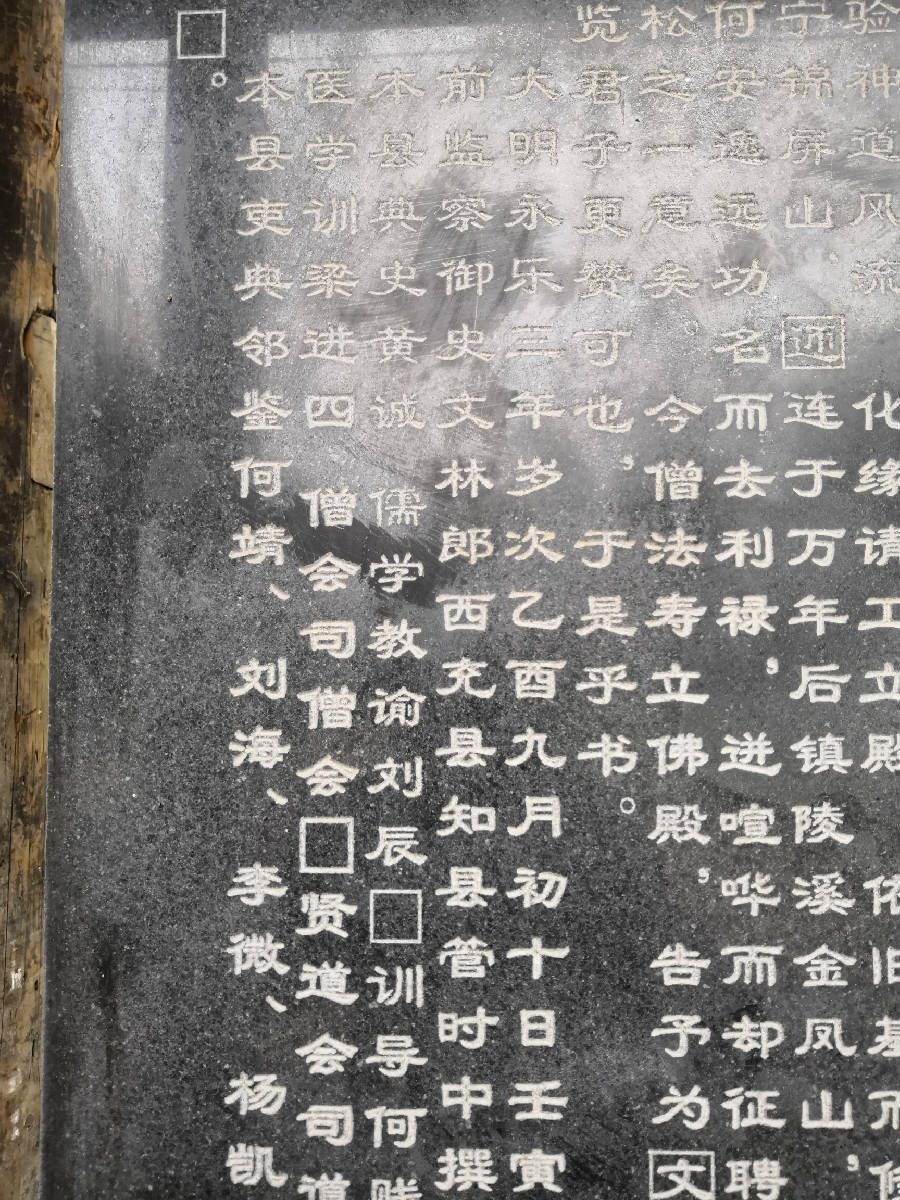 验神道风流 化缘请工立殿 依旧基而修
宁锦屏山、连于万年后镇陵溪金凤山，
何安逸远功名而去利禄，迸喧哗而却征聘
松之一意矣。今僧法寿立佛殿，告予为文
览君子更赞可也，于是乎书。
大明永乐三年岁次乙酉九月初十日壬寅
前监察御史文林郎西充县知县管时中撰
本县典史黄诚 儒学教谕刘辰□训导何
医学训梁进四 僧会司僧会□贤道会司道
本县吏典邻鉴何靖、刘海、李微、杨凯
□。